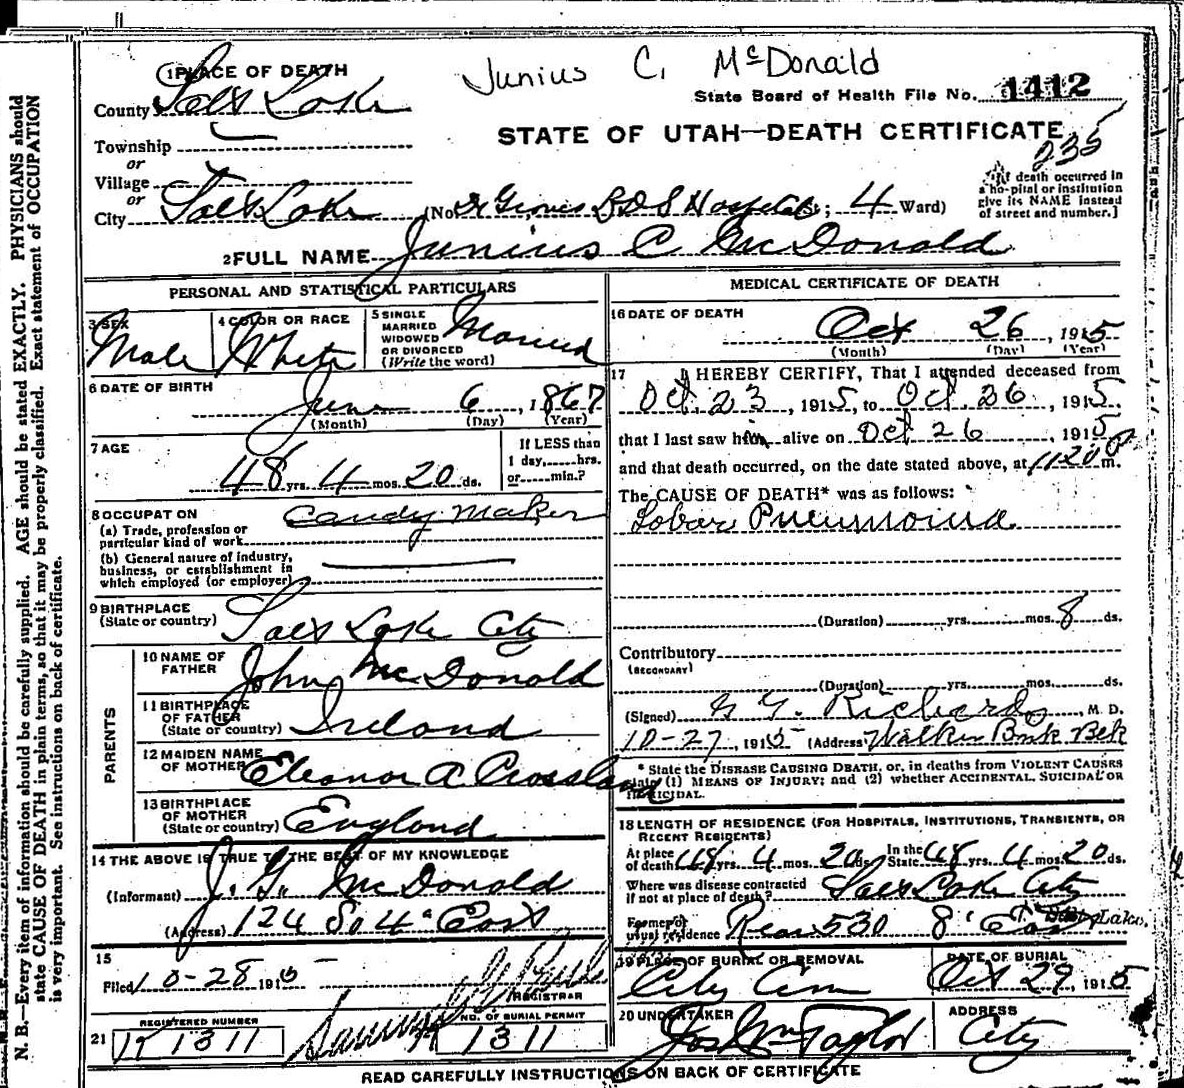 Junius C. McDonald
1 PLACE OF DEATH
County Salt Lake
State Board of Health File No. 1412
STATE OF UTAH—DEATH CERTIFICATE
235
Township
or
Village
or
City Salt Lake (No. Dr Groves LDS Hospital St; 4 Ward)
[If death occurred in
a hospital or institution
give its NAME instead
of street and number.]
2 FULL NAME Junius C McDonald
PERSONAL AND STATISTICAL PARTICULARS
3 SEX
Male
4 COLOR OR RACE
White
5 SINGLE
MARRIED
WIDOWED
OR DIVORCED
(Write the word)
Married
6 DATE OF BIRTH
June 6, 1867
(Month) (Day) (Year)
7 AGE
48 yrs. 4 mos. 20 ds.
If LESS than
1 day,......hrs.
or......min.?
8 OCCUPATION
(a) Trade, profession or
particular kind of work
Candy Maker
(b) General nature of industry,
business, or establishment in
which employed (or employer)
9 BIRTHPLACE
(State or country) Salt Lake City
PARENTS
10 NAME OF
FATHER John McDonald
11 BIRTHPLACE
OF FATHER
(State or country) Ireland
12 MAIDEN NAME
OF MOTHER Eleanor A Crossland
13 BIRTHPLACE
OF MOTHER
(State or country) England
14 THE ABOVE IS TRUE TO THE BEST OF MY KNOWLEDGE
(Informant) J. G. McDonald
(Address) 124 So 4" East
15
Filed 10-28 1915
REGISTRAR
21 REGISTERED NUMBER
1311
NO. OF BURIAL PERMIT
1311
MEDICAL CERTIFICATE OF DEATH
16 DATE OF DEATH
Oct 26, 1915
(Month) (Day) (Year)
17 I HEREBY CERTIFY, That I attended deceased from
Oct. 23, 1915, to Oct. 26, 1915
that I last saw him alive on Oct 26, 1915
and that death occurred, on the date stated above, at 1120 P m.
The CAUSE OF DEATH* was as follows:
Lobar Pneumonia
(Duration) yrs. mos. 8 ds.
Contributory
(SECONDARY)
(Duration) yrs. mos. ds.
(Signed) G. G. Richards, M. D.
10-27, 1915 (Address) Walker Bank Bld
* State the DISEASE CAUSING DEATH, or, in deaths from VIOLENT CAUSES
state (1) MEANS OF INJURY; and (2) whether ACCIDENTAL, SUICIDAL OR
HOMICIDAL.
18 LENGTH OF RESIDENCE (FOR HOSPITALS, INSTITUTIONS, TRANSIENTS, OR
RECENT RESIDENTS)
At place
of death 48 yrs. 4 mos. 20 ds. In the
State 48 yrs. 4 mos. 20 ds.
Where was disease contracted
if not at place of death? Salt Lake City
Former or
usual residence Rear 530 8" East Salt Lake
19 PLACE OF BURIAL OR REMOVAL
City Cem
DATE OF BURIAL
Oct 29, 1915
20 UNDERTAKER
Jos Wm Taylor
ADDRESS
City
READ CAREFULLY INSTRUCTIONS ON BACK OF CERTIFICATE
N. B.—Every item of information should be carefully supplied. AGE should be stated EXACTLY. PHYSICIANS should
state CAUSE OF DEATH in plain terms, so that it may be properly classified. Exact statement of OCCUPATION
is very important. See instructions on back of certificate.